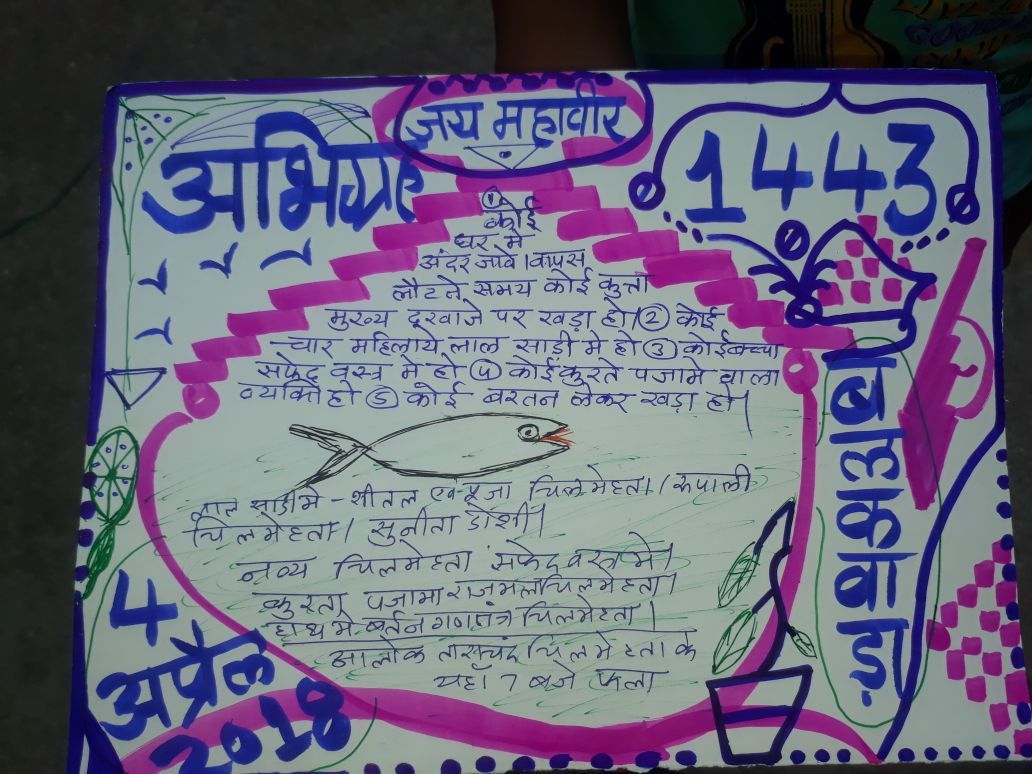 जय महावीर
अभिग्रह
1443
① कोई
घर मे
अंदर जावे। वापस
लौटते समय कोई कुत्ता
मुख्य दरवाजे पर खड़ा हो। ② कोई
चार महिलाये लाल साड़ी मे हो ③ कोई बच्चा
सफेद वस्त्र मे हो ④ कोई कुरते पजामे वाला
व्यक्ति हो ⑤ कोई बरतन लेकर खड़ा हो।
लाल साडी मे - शीतल एवं पूजा चिलमेहता। रूपाली
चिलमेहता। सुनीता डोशी।
चिलमेहता सफेद वस्त्र मे।
कुरता पजामा राजमल चिलमेहता।
हाथ मे बर्तन गणपत चिलमेहता।
आलोक ताराचंद चिलमेहता के
यहाँ 7 बजे फला
बलकवाड़ा
4
अप्रैल
2018